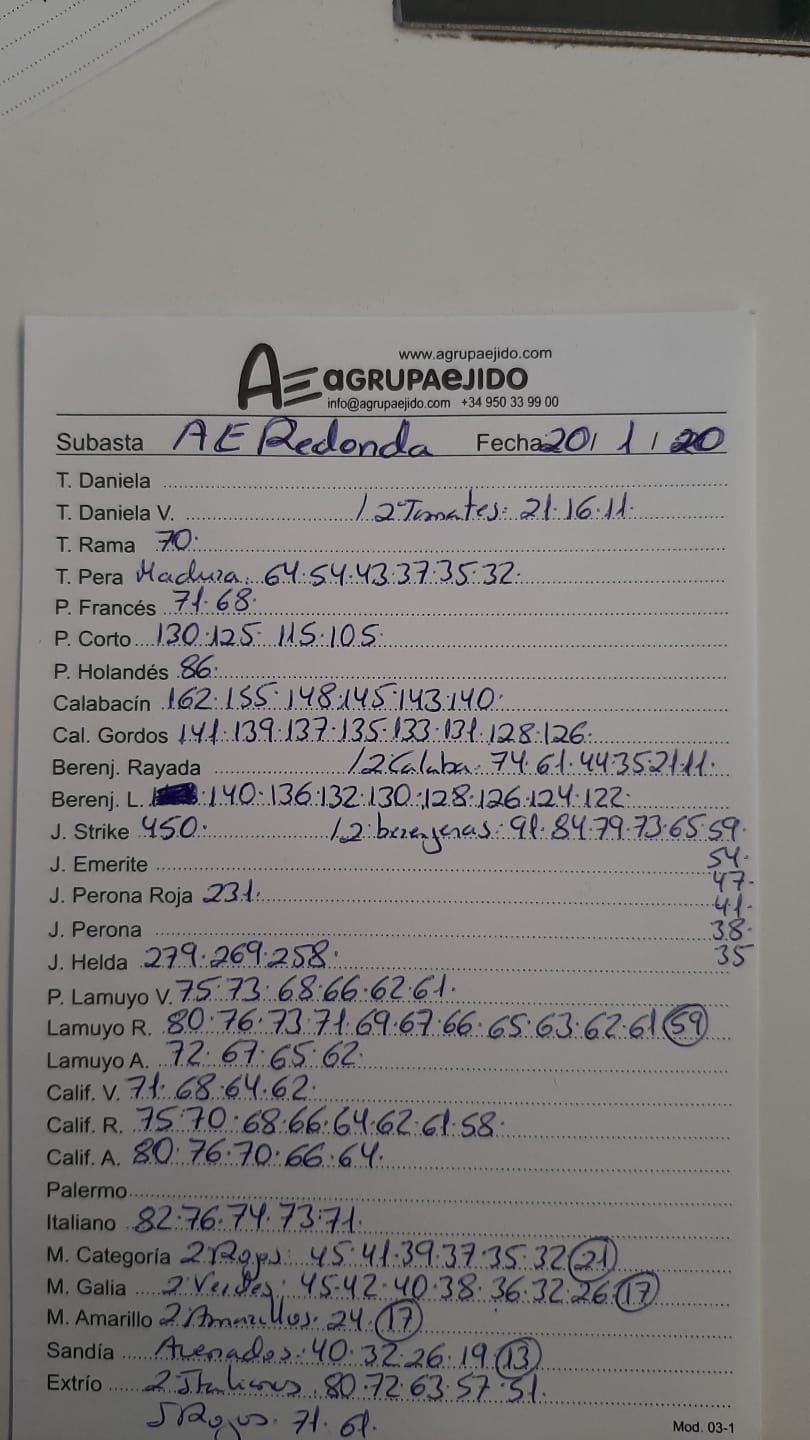 www.agrupaejido.com
AE aGRUPAeJIDO
info@agrupaejido.com +34 950 33 99 00
Subasta AE Redonda Fecha 20/ 1 / 20
T. Daniela
T. Daniela V. /2 Tomates: 21·16·11·
T. Rama 70·
T. Pera Madura: 64·54·43·37·35·32·
P. Francés 71·68·
P. Corto 130·125· 115·105·
P. Holandés 86·
Calabacín 162·155·148·145·143·140·
Cal. Gordos 141·139·137·135·133·131·128·126·
Berenj. Rayada /2 Calaba· 74·61·44·35·21·11·
Berenj. L. 140·136·132·130·128·126·124·122·
J. Strike 450· /2 berenjenas: 91·84·79·73·65·59·
J. Emerite 54·
47·
J. Perona Roja 231· 41·
J. Perona 38·
J. Helda 279·269·258· 35
P. Lamuyo V. 75·73·68·66·62·61·
Lamuyo R. 80·76·73·71·69·67·66·65·63·62·61 59
Lamuyo A. 72·67·65·62·
Calif. V. 71·68·64·62·
Calif. R. 75·70·68·66·64·62·61·58·
Calif. A. 80·76·70·66·64·
Palermo
Italiano 82·76·74·73·71·
M. Categoría 2 Rojos: 45·41·39·37·35·32 21
M. Galia 2 Verdes: 45·42·40·38·36·32·26· 17
M. Amarillo 2 Amarillos· 24· 17
Sandía Arenados· 40·32·26·19· 13
Extrío 2 Italianos· 80·72·63·57·51·
Rojos· 71·61·
Mod. 03-1